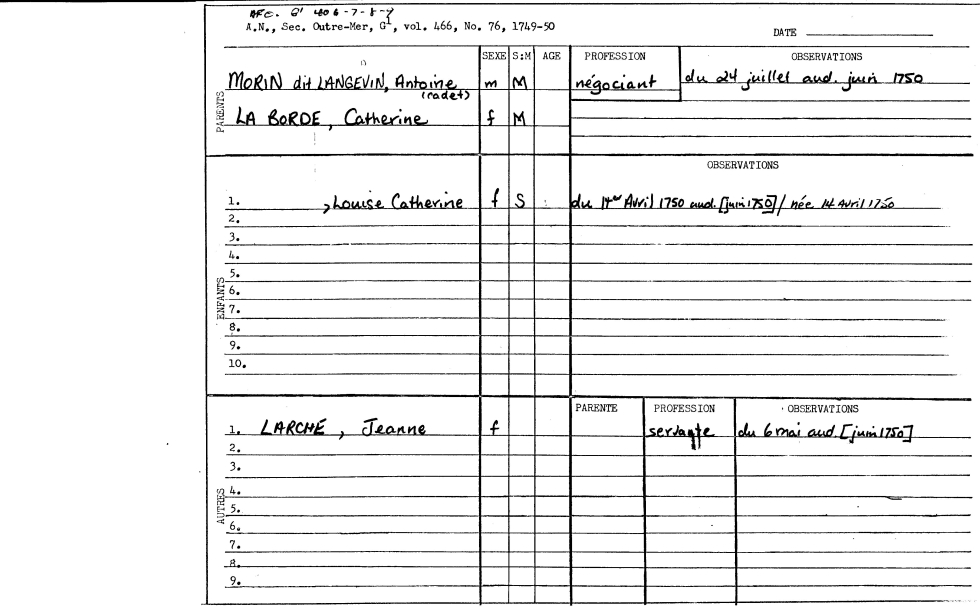 AFC. G¹ 406-7-8-9
A.N., Sec. Outre-Mer, G¹, vol. 466, No. 76, 1749-50
DATE
SEXE S:M AGE PROFESSION OBSERVATIONS
PARENTS
MORIN dit LANGEVIN, Antoine m M négociant du 24 juillet aud. juin 1750
(cadet)
LA BORDE, Catherine f M
OBSERVATIONS
ENFANTS
1. , Louise Catherine f S du 14er Avril 1750 aud. [juin 1750] / née 14 Avril 1750
2.
3.
4.
5.
6.
7.
8.
9.
10.
PARENTE PROFESSION OBSERVATIONS
AUTRES
1. LARCHÉ, Jeanne f servante du 6 mai aud. [juin 1750]
2.
3.
4.
5.
6.
7.
8.
9.